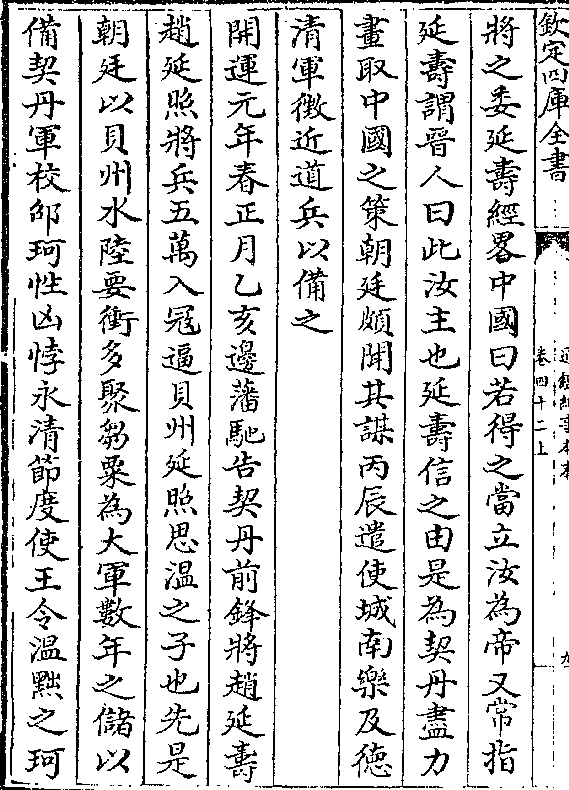 欽定四庫全書
通鑑紀事本末
卷四十二上
九
將之委延壽經畧中國曰若得之當立汝為帝又常指
延壽謂晉人曰此汝主也延壽信之由是為契丹盡力
畫取中國之策朝廷頗聞其謀丙辰遣使城南樂及徳
清軍徴近道兵以備之
開運元年春正月乙亥邊藩馳告契丹前鋒將趙延壽
趙延照將兵五萬入冦逼貝州延照思溫之子也先是
朝廷以貝州水陸要衝多聚芻粟為大軍數年之儲以
備契丹軍校邵珂性凶悖永清節度使王令溫黜之珂